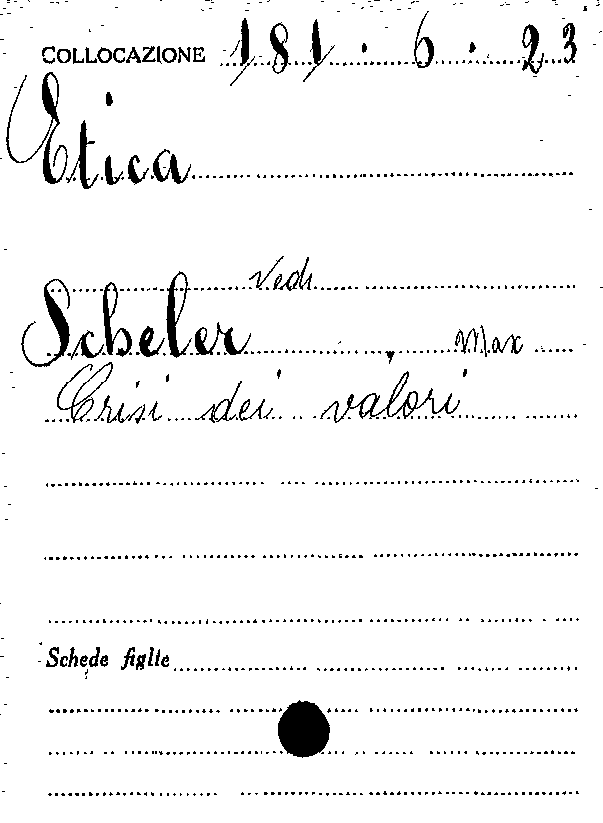 COLLOCAZIONE 181.6.23
Etica
Vedi
Scheler, Max
Crisi dei valori
Schede figlie